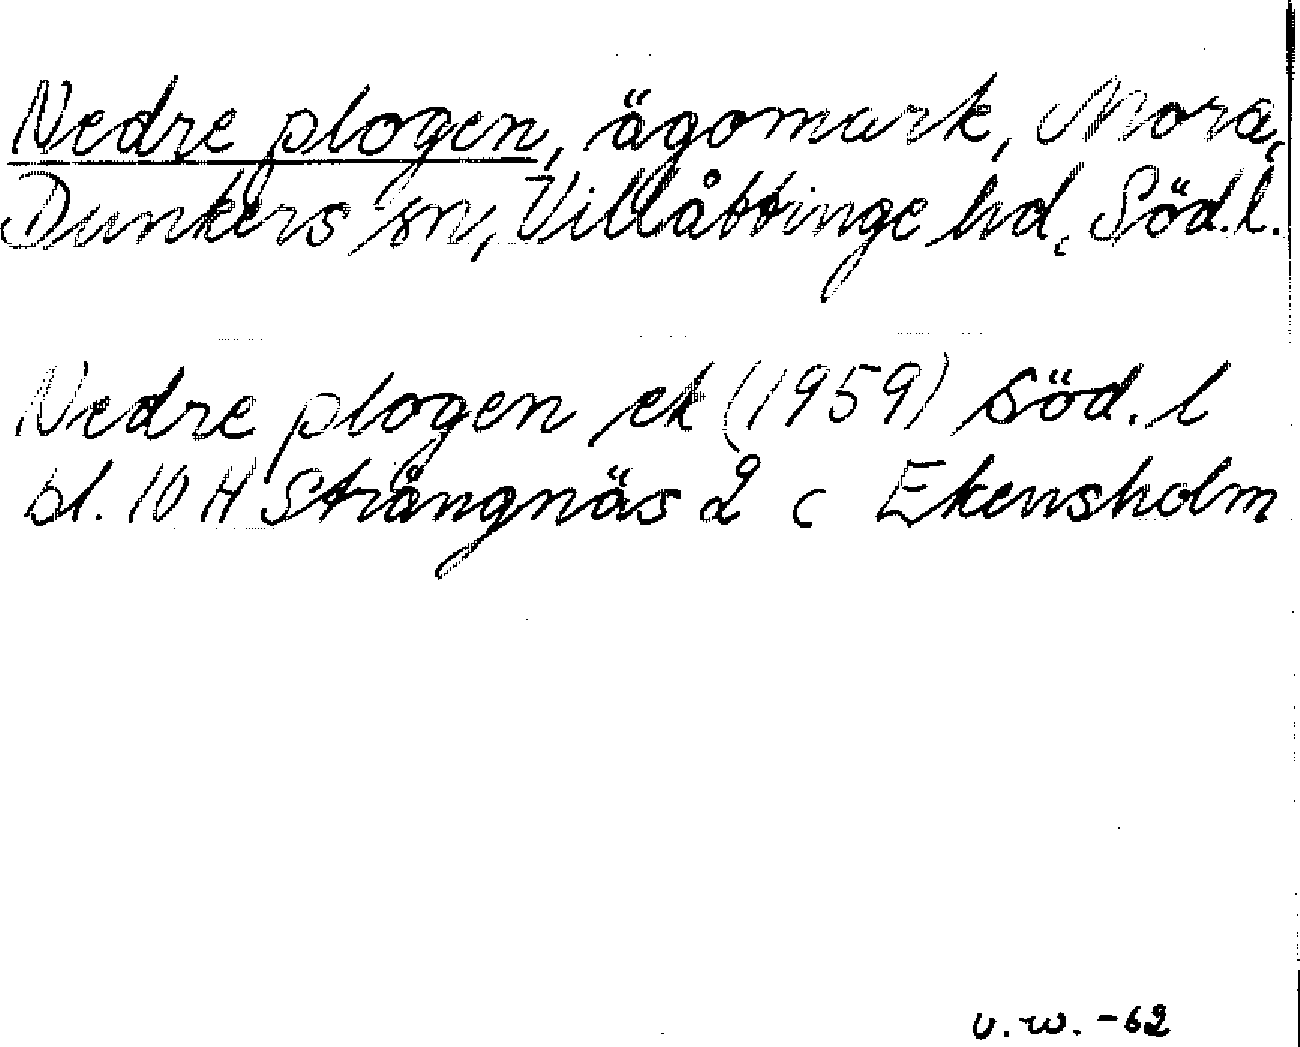 Nedre plogen, ägomark, Mora,
Dunkers sn, Villåttinge hd, Söd.l.
Nedre plogen ek (1959) Söd. l
bl. 10 H Strängnäs 2 c Ekensholm
v. w. -62